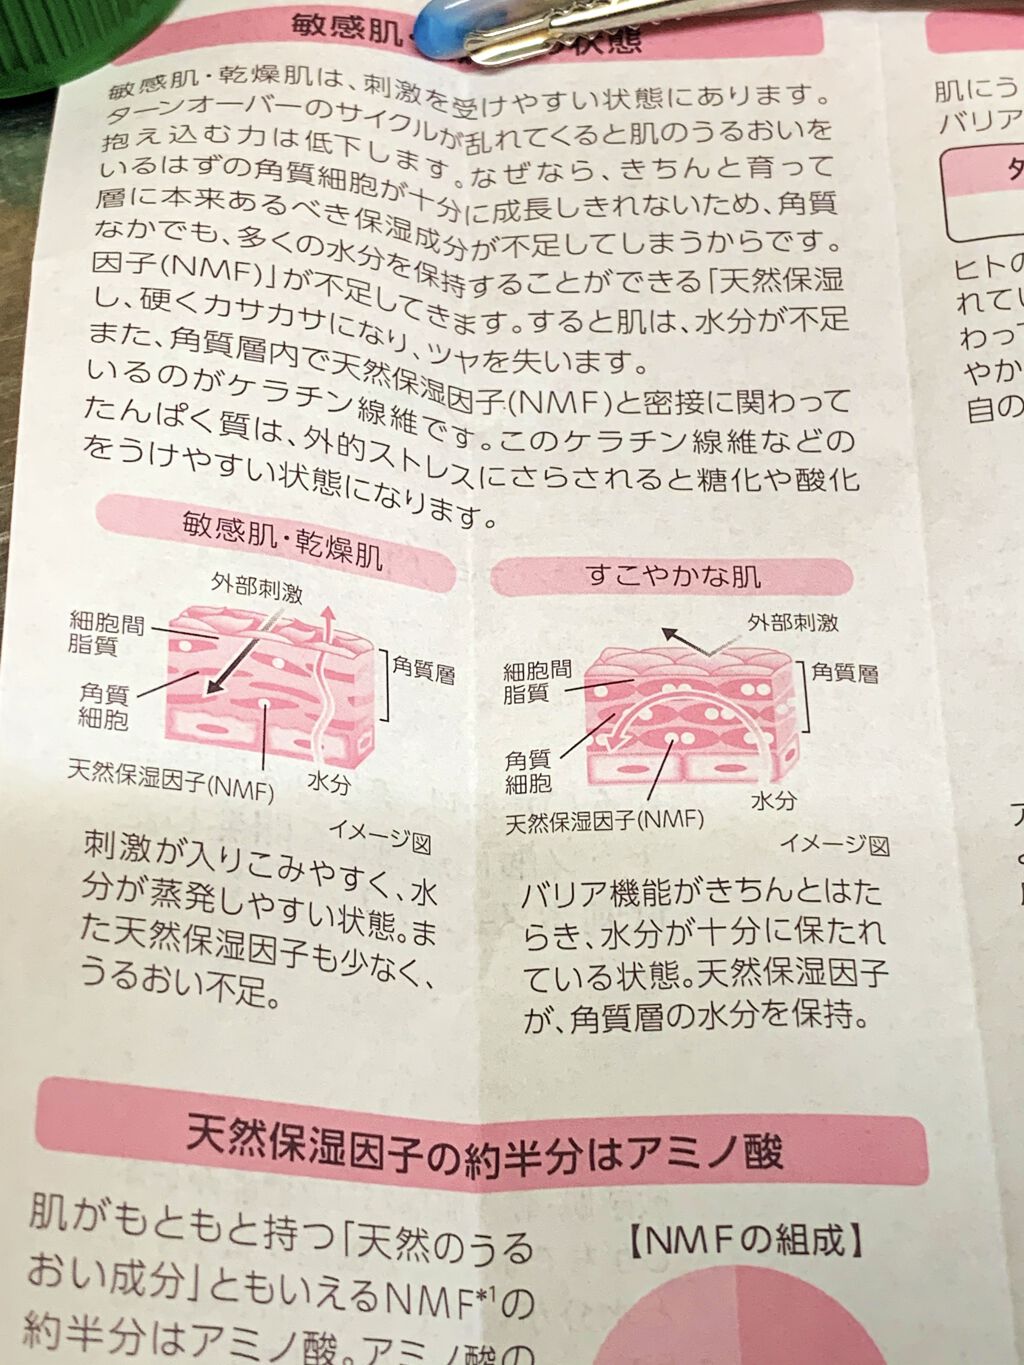 敏感肌・
状態
敏感肌・乾燥肌は、刺激を受けやすい状態にあります。
ターンオーバーのサイクルが乱れてくると肌のうるおいを
抱え込む力は低下します。なぜなら、きちんと育って
いるはずの角質細胞が十分に成長しきれないため、角質
層に本来あるべき保湿成分が不足してしまうからです。
なかでも、多くの水分を保持することができる「天然保湿
因子(NMF)」が不足してきます。すると肌は、水分が不足
し、硬くカサカサになり、ツヤを失います。
また、角質層内で天然保湿因子(NMF)と密接に関わって
いるのがケラチン線維です。このケラチン線維などの
たんぱく質は、外的ストレスにさらされると糖化や酸化
をうけやすい状態になります。
敏感肌・乾燥肌
外部刺激
細胞間
脂質
角質層
角質
細胞
天然保湿因子(NMF)
水分
イメージ図
刺激が入りこみやすく、水
分が蒸発しやすい状態。ま
た天然保湿因子も少なく、
うるおい不足。
すこやかな肌
外部刺激
細胞間
脂質
角質層
角質
細胞
天然保湿因子(NMF)
水分
イメージ図
バリア機能がきちんとはた
らき、水分が十分に保たれ
ている状態。天然保湿因子
が、角質層の水分を保持。
天然保湿因子の約半分はアミノ酸
肌がもともと持つ「天然のうる
おい成分」ともいえるNMF*1の
約半分はアミノ酸。アミノ酸の
【NMFの組成】
肌にう
バリア
ヒトの
れてい
わって
やか
自の